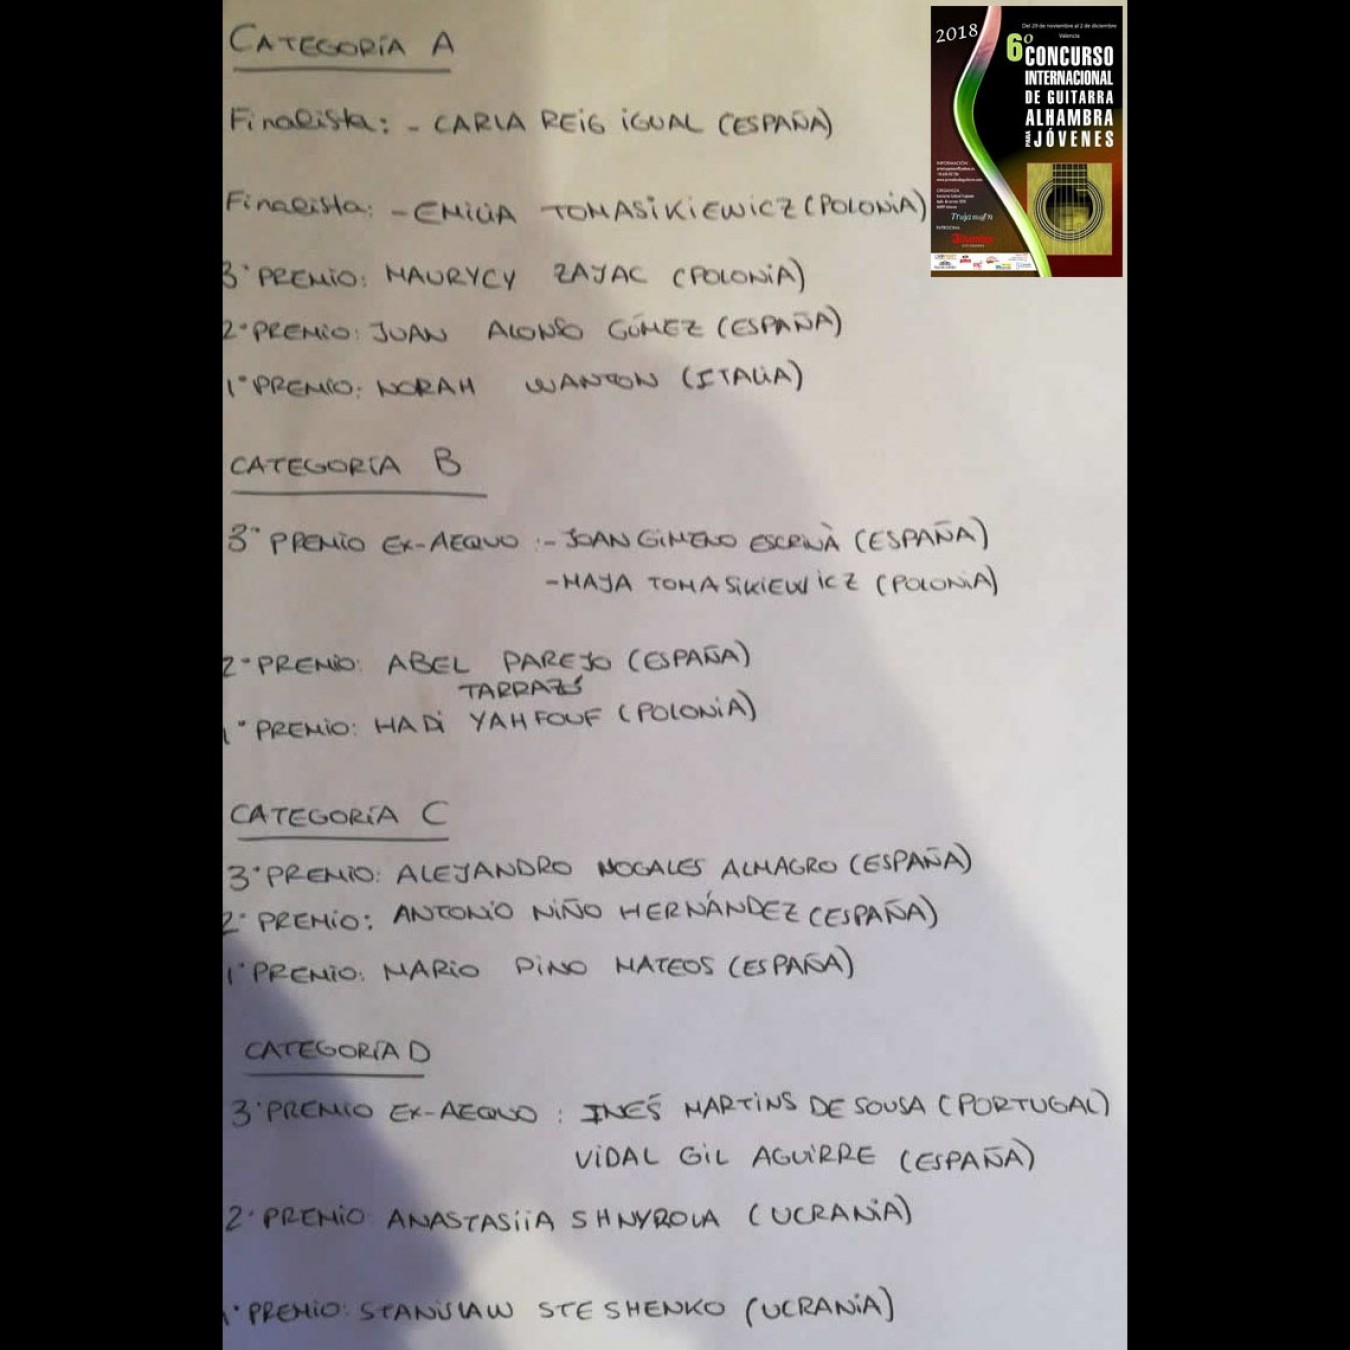 CATEGORÍA A
Finalista: - CARLA REIG IGUAL (ESPAÑA)
Finalista: - EMILIA TOMASIKIEWICZ (POLONIA)
3º PREMIO: MAURYCY ZAJAC (POLONIA)
2º PREMIO: JUAN ALONSO GÓMEZ (ESPAÑA)
1º PREMIO: NORAH WANTON (ITALIA)
CATEGORÍA B
3º PREMIO EX-AEQUO: - JOAN GIMENO ESCRIVÀ (ESPAÑA)
- MAJA TOMASIKIEWICZ (POLONIA)
2º PREMIO: ABEL PAREJO (ESPAÑA)
TARRAZÓ
1º PREMIO: HADI YAHFOUF (POLONIA)
CATEGORÍA C
3º PREMIO: ALEJANDRO NOGALES ALMAGRO (ESPAÑA)
2º PREMIO: ANTONIO NIÑO HERNÁNDEZ (ESPAÑA)
1º PREMIO: MARIO PINO MATEOS (ESPAÑA)
CATEGORÍA D
3º PREMIO EX-AEQUO: INÉS MARTINS DE SOUSA (PORTUGAL)
VIDAL GIL AGUIRRE (ESPAÑA)
2º PREMIO: ANASTASIIA SHNYROVA (UCRANIA)
1º PREMIO: STANISLAW STESHENKO (UCRANIA)
2018
Del 29 de noviembre al 2 de diciembre
Valencia
6º CONCURSO
INTERNACIONAL
DE GUITARRA
ALHAMBRA
PARA JÓVENES
INFORMACIÓN
ORGANIZA
Trujamán
PATROCINA
Alhambra